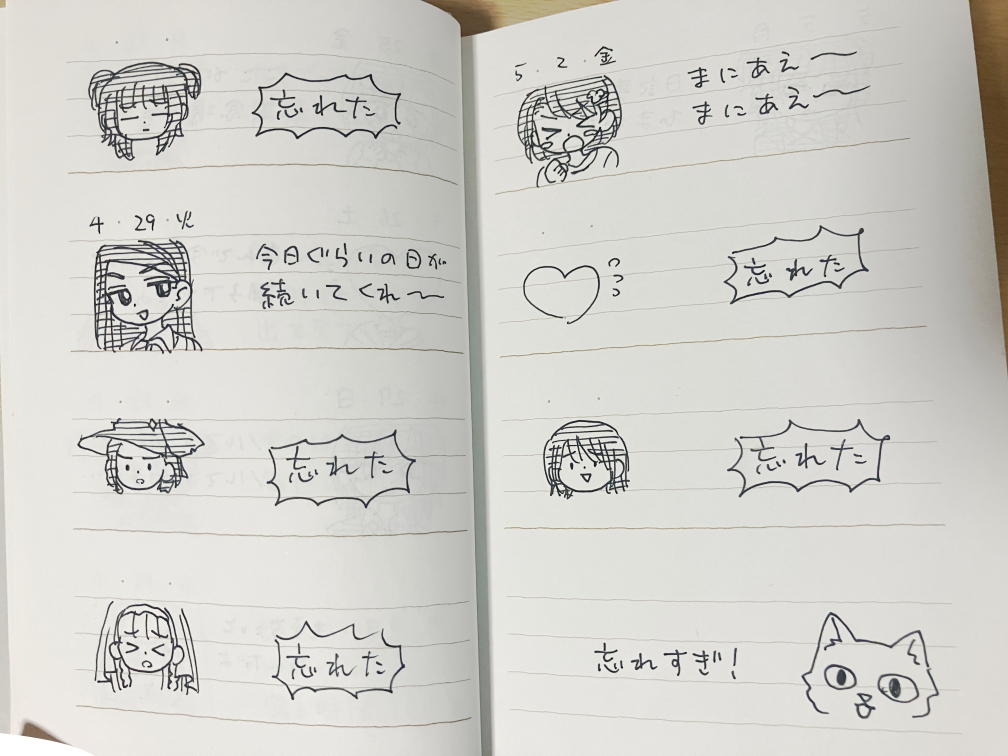 忘れた
4・29・火
今日ぐらいの日が
続いてくれ〜
忘れた
忘れた
5・2・金
まにあえ〜
まにあえ〜
忘れた
忘れた
忘れすぎ!